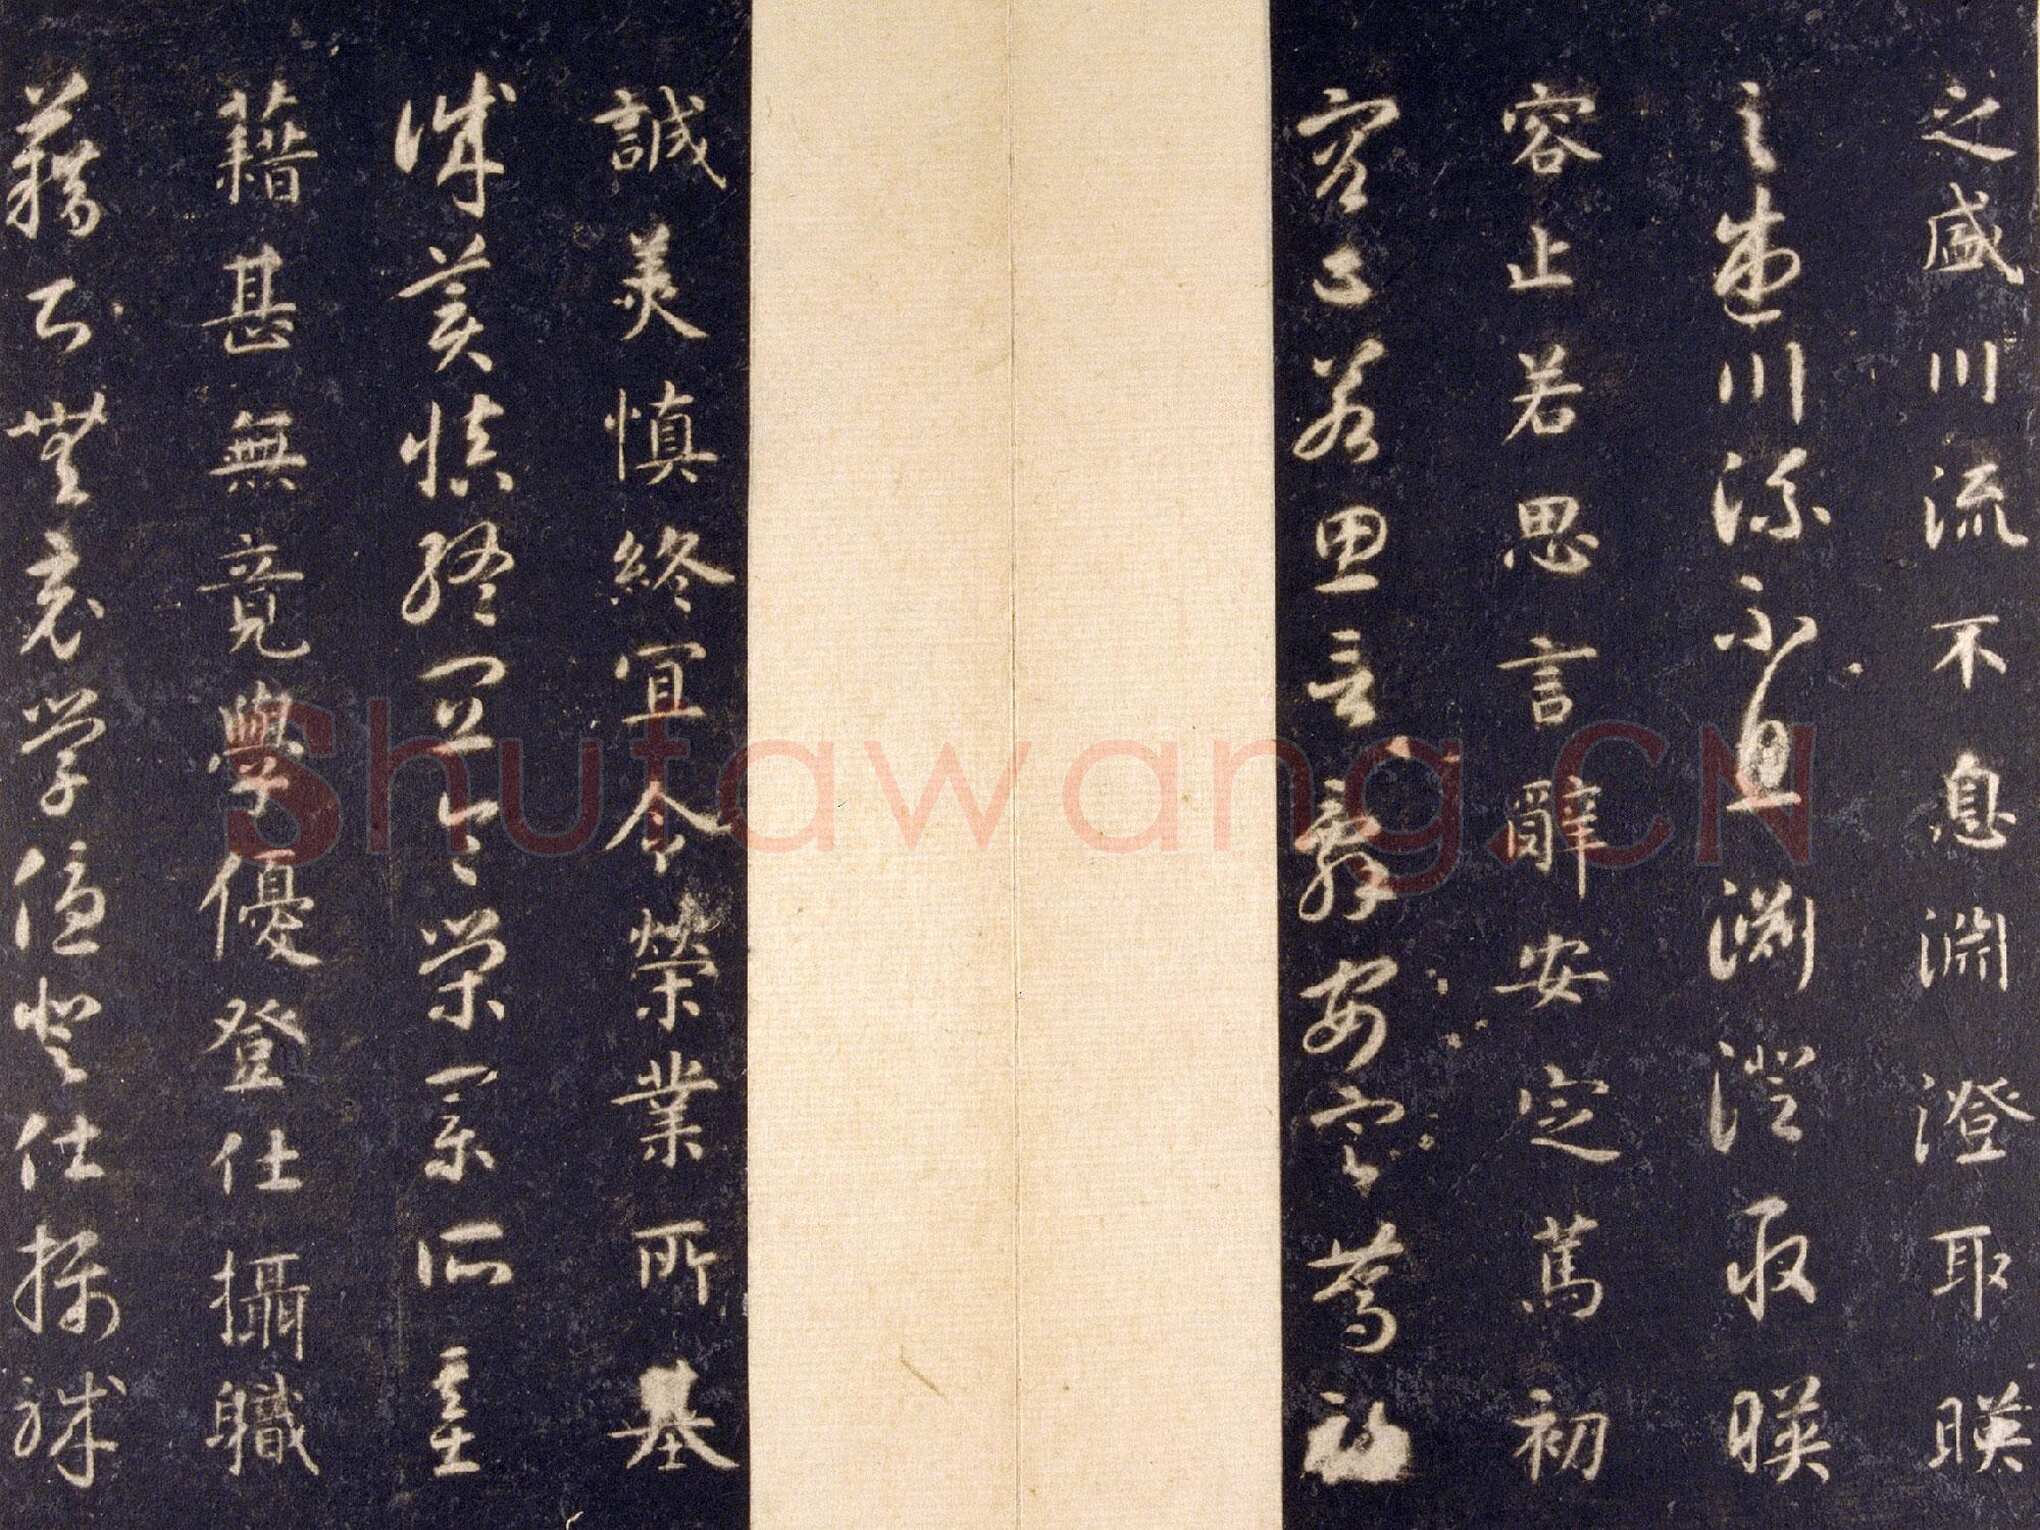 之盛川流不息淵澄取暎
之盛川流不息淵澄取暎
容止若思言辭安定篤初
容止若思言辭安定篤初
誠美慎終宜令榮業所基
誠美慎終宜令榮業所基
藉甚無竟學優登仕攝職
藉甚無竟學優登仕攝職
Shufawang.CN